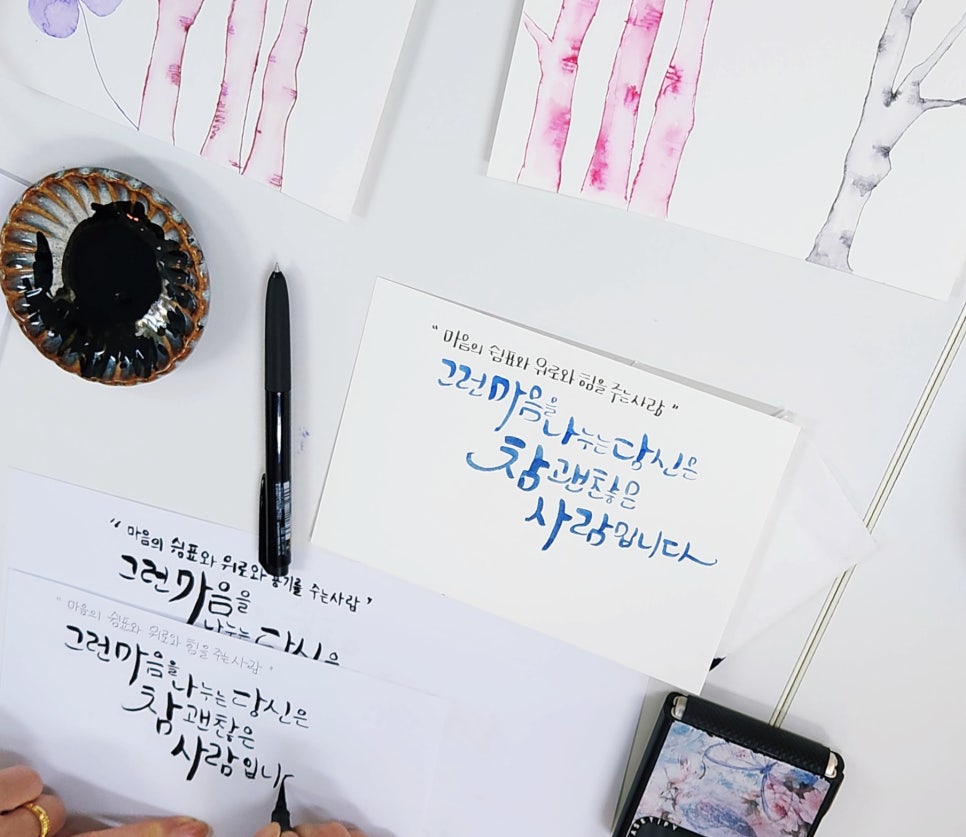 “ 마음의 쉼표와 위로와 힘을 주는사람 ”
그런마음을
나누는당신은
참괜찮은
사람입니다
“ 마음의 쉼표와 위로와 용기를 주는사람 ”
그런마음을
나누는당신은
“ 마음의 쉼표와 위로와 힘을 주는사람 ”
그런마음을
나누는당신은
참괜찮은
사람입니